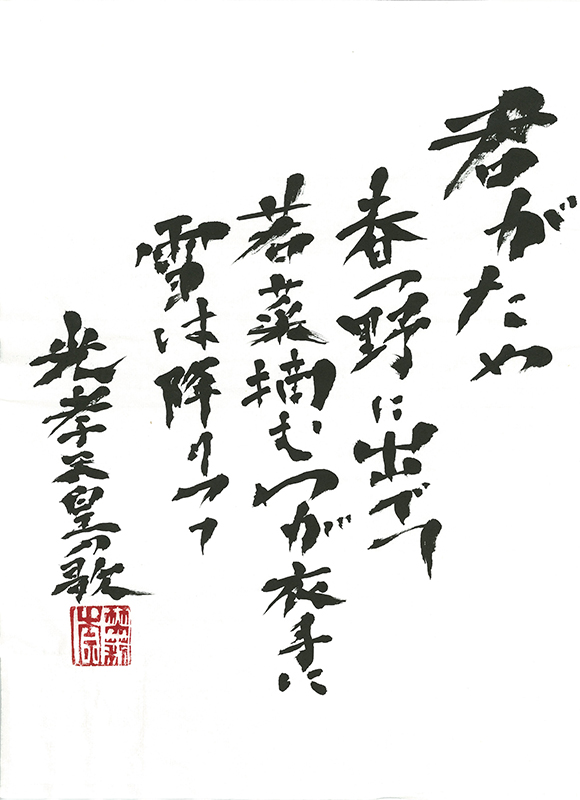 君がため
春の野に出でて
若菜摘むわが衣手に
雪は降りつつ
光孝天皇の歌